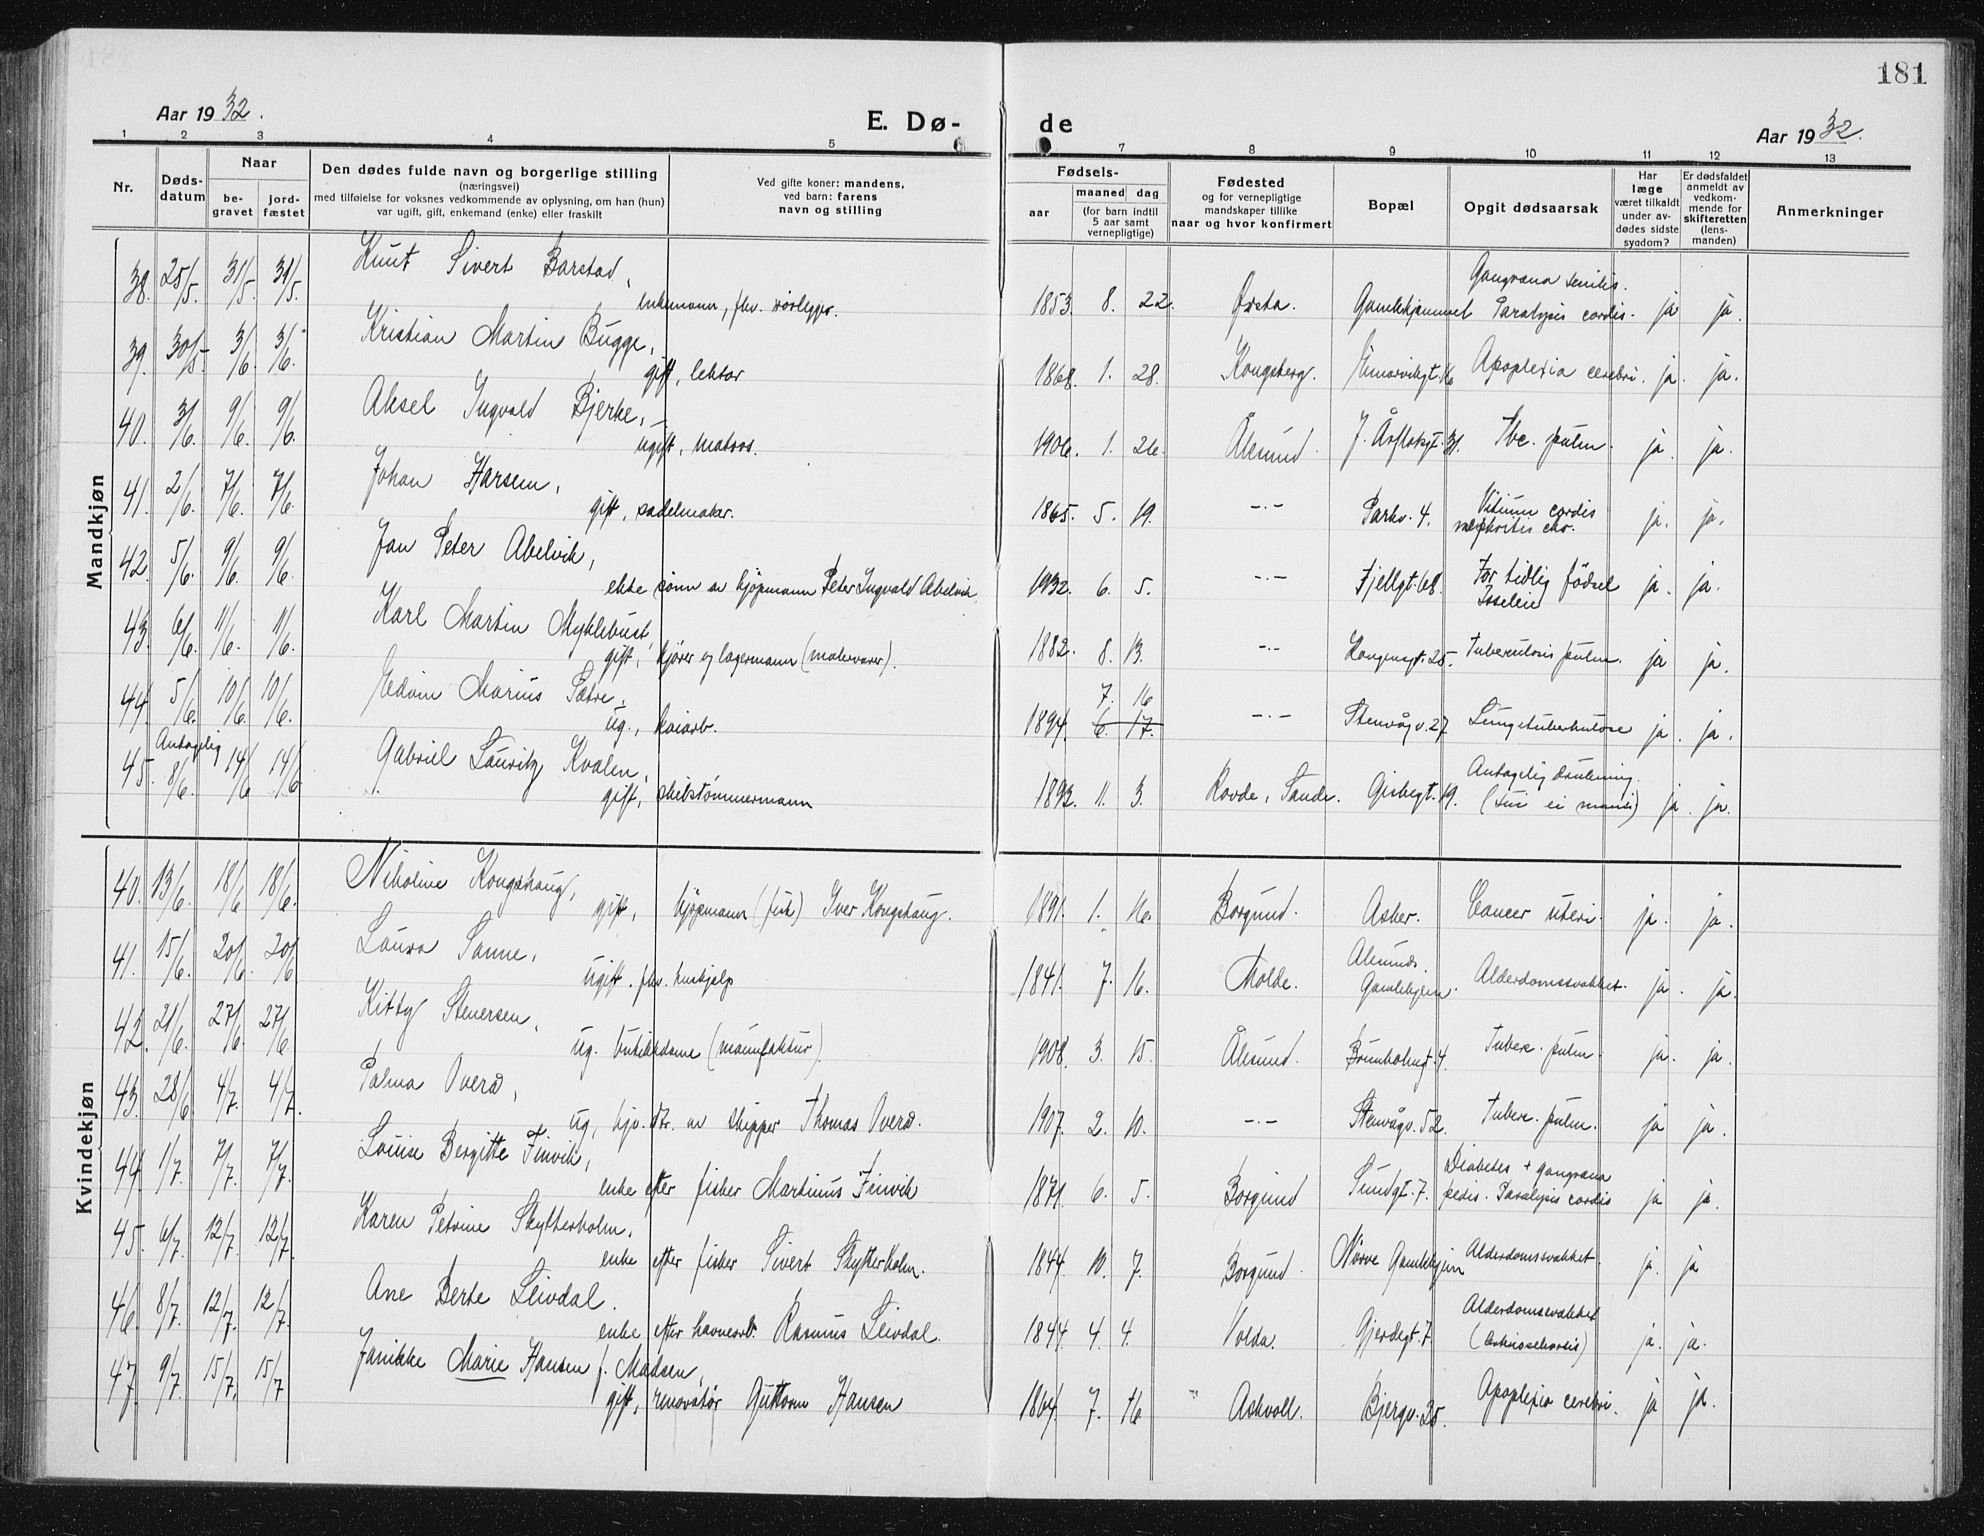 181
Aar 1932.
E. Dø-
de
Aar 1932.
1 2 3 4 5 6 7 8 9 10 11 12 13
Nr.
Døds-
datum
Naar
be-
gravet
jord-
fæstet
Den dødes fulde navn og borgerlige stilling
(næringsvei)
med tilføielse for voksnes vedkommende av oplysning, om han (hun)
var ugift, gift, enkemand (enke) eller fraskilt
Ved gifte koner: mandens,
ved barn: farens
navn og stilling
Fødsels-
aar
maaned dag
(for barn indtil
5 aar samt
vernepligtige)
Fødested
og for vernepligtige
mandskaper tillike
naar og hvor konfirmert
Bopæl
Opgit dødsaarsak
Har
læge
været tilkaldt
under av-
dødes sidste
sygdom?
Er dødsfaldet
anmeldt av
vedkom-
mende for
skifteretten
(lens-
manden)
Anmerkninger
Mandkjøn
Knut Sivert Barstad, Gangræna senilis.
38. 25/5. 31/5. 31/5. enkemann, fhv. rørlegger. 1853. 8. 22. Ørsta. Gamlehjemmet Paralysis cordis. ja ja.
Kristian Martin Bugge,
39. 30/5 3/6. 3/6. gift, lektor 1868. 1. 28. Kongsberg. Apoplexia cerebri. ja. ja.
Aksel Ingvald Bjerke,
40. 3/6. 9/6. 9/6. ugift, matros. 1906. 1. 26. Ålesund. 31. Tbc. pulm. ja. ja.
Johan Hansen, Vitium cordis
41. 2/6. 7/6. 7/6. gift, sadelmaker. 1865. 5. 19. -"- Parkv. 4. nephritis chr. ja. ja.
Jan Peter Abelvik,
42. 5/6. 9/6. 9/6. ekte sønn av kjøpmann Peter Ingvald Abelvik. 1932. 6. 5. -"- Fjellgt. 68. For tidlig födsel ja. ja.
Karl Martin Myklebust,
43. 6/6. 11/6. 11/6. gift, kjører og lagermann (malervarer). 1882. 8. 13. -"- Kongensgt. 25. Tuberculosis pulm. ja ja.
Edvin Marius Sætre, 7. 16
44. 5/6. 10/6. 10/6. ug., kaiarb. 1894. 6. 17. -"- Stenvågv. 27 Lungetuberkulose ja. ja.
Antagelig Gabriel Lauritz Kvalen, Antagelig drukning.
45. 8/6. 14/6 14/6 gift, skibstömmermann 1892. 11. 3. Rovde, Sande. 19. ja. ja.
Kvindekjøn
Nikoline Kongshaug,
40. 13/6. 18/6 18/6. gift, kjøpmann (fisk) Iver Kongshaug. 1891. 1. 16. Borgund. Asker. Cancer uteri. ja. ja.
Laura Sanne, Ålesunds
41. 15/6. 20/6. 20/6 ugift. fhv. huskjelp 1841. 7. 16. Molde. Gamlehjem. Alderdomssvakhet. ja. ja.
Kitty Stenersen,
42. 21/6. 27/6. 27/6 ug. butikkdame (manufaktur) 1908. 3. 15. Ålesund. Tuberc. pulm. ja. ja.
Palma Overå,
43. 28/6 4/7. 4/7. ug., hjv. dtr. av skipper Thomas Overå. 1907. 2. 10. -"- Stenvågv. 52. Tuberc. pulm. ja ja.
Louise Bergitte Finvik, Diabetes + gangræna
44. 1/7. 7/7. 7/7. enke efter fisker Martinus Finvik 1871. 6. 5. Borgund Sundgt. 7. pedis. Paralysis cordis ja ja.
Karen Petrine Skytterholm,
45. 6/7. 12/7. 12/7. enke efter fisker Sivert Skytterholm. 1844. 10. 7. Borgund. Nørve Gamlehjem Alderdomssvakhet. ja. ja
Ane Berte Leivdal. Alderdomssvakhet
46. 8/7. 12/7. 12/7. enke efter havnearb. Rasmus Leivdal. 1844 4. 4. Volda. Gjerdegt. 7. ja. ja.
Janikke Marie Hansen f. Madsen,
47. 9/7. 15/7. 15/7 gift, renovatør Guttorm Hansen 1864. 7. 16 Askvoll. Bjergv. 25. Apoplexia cerebri. ja ja.